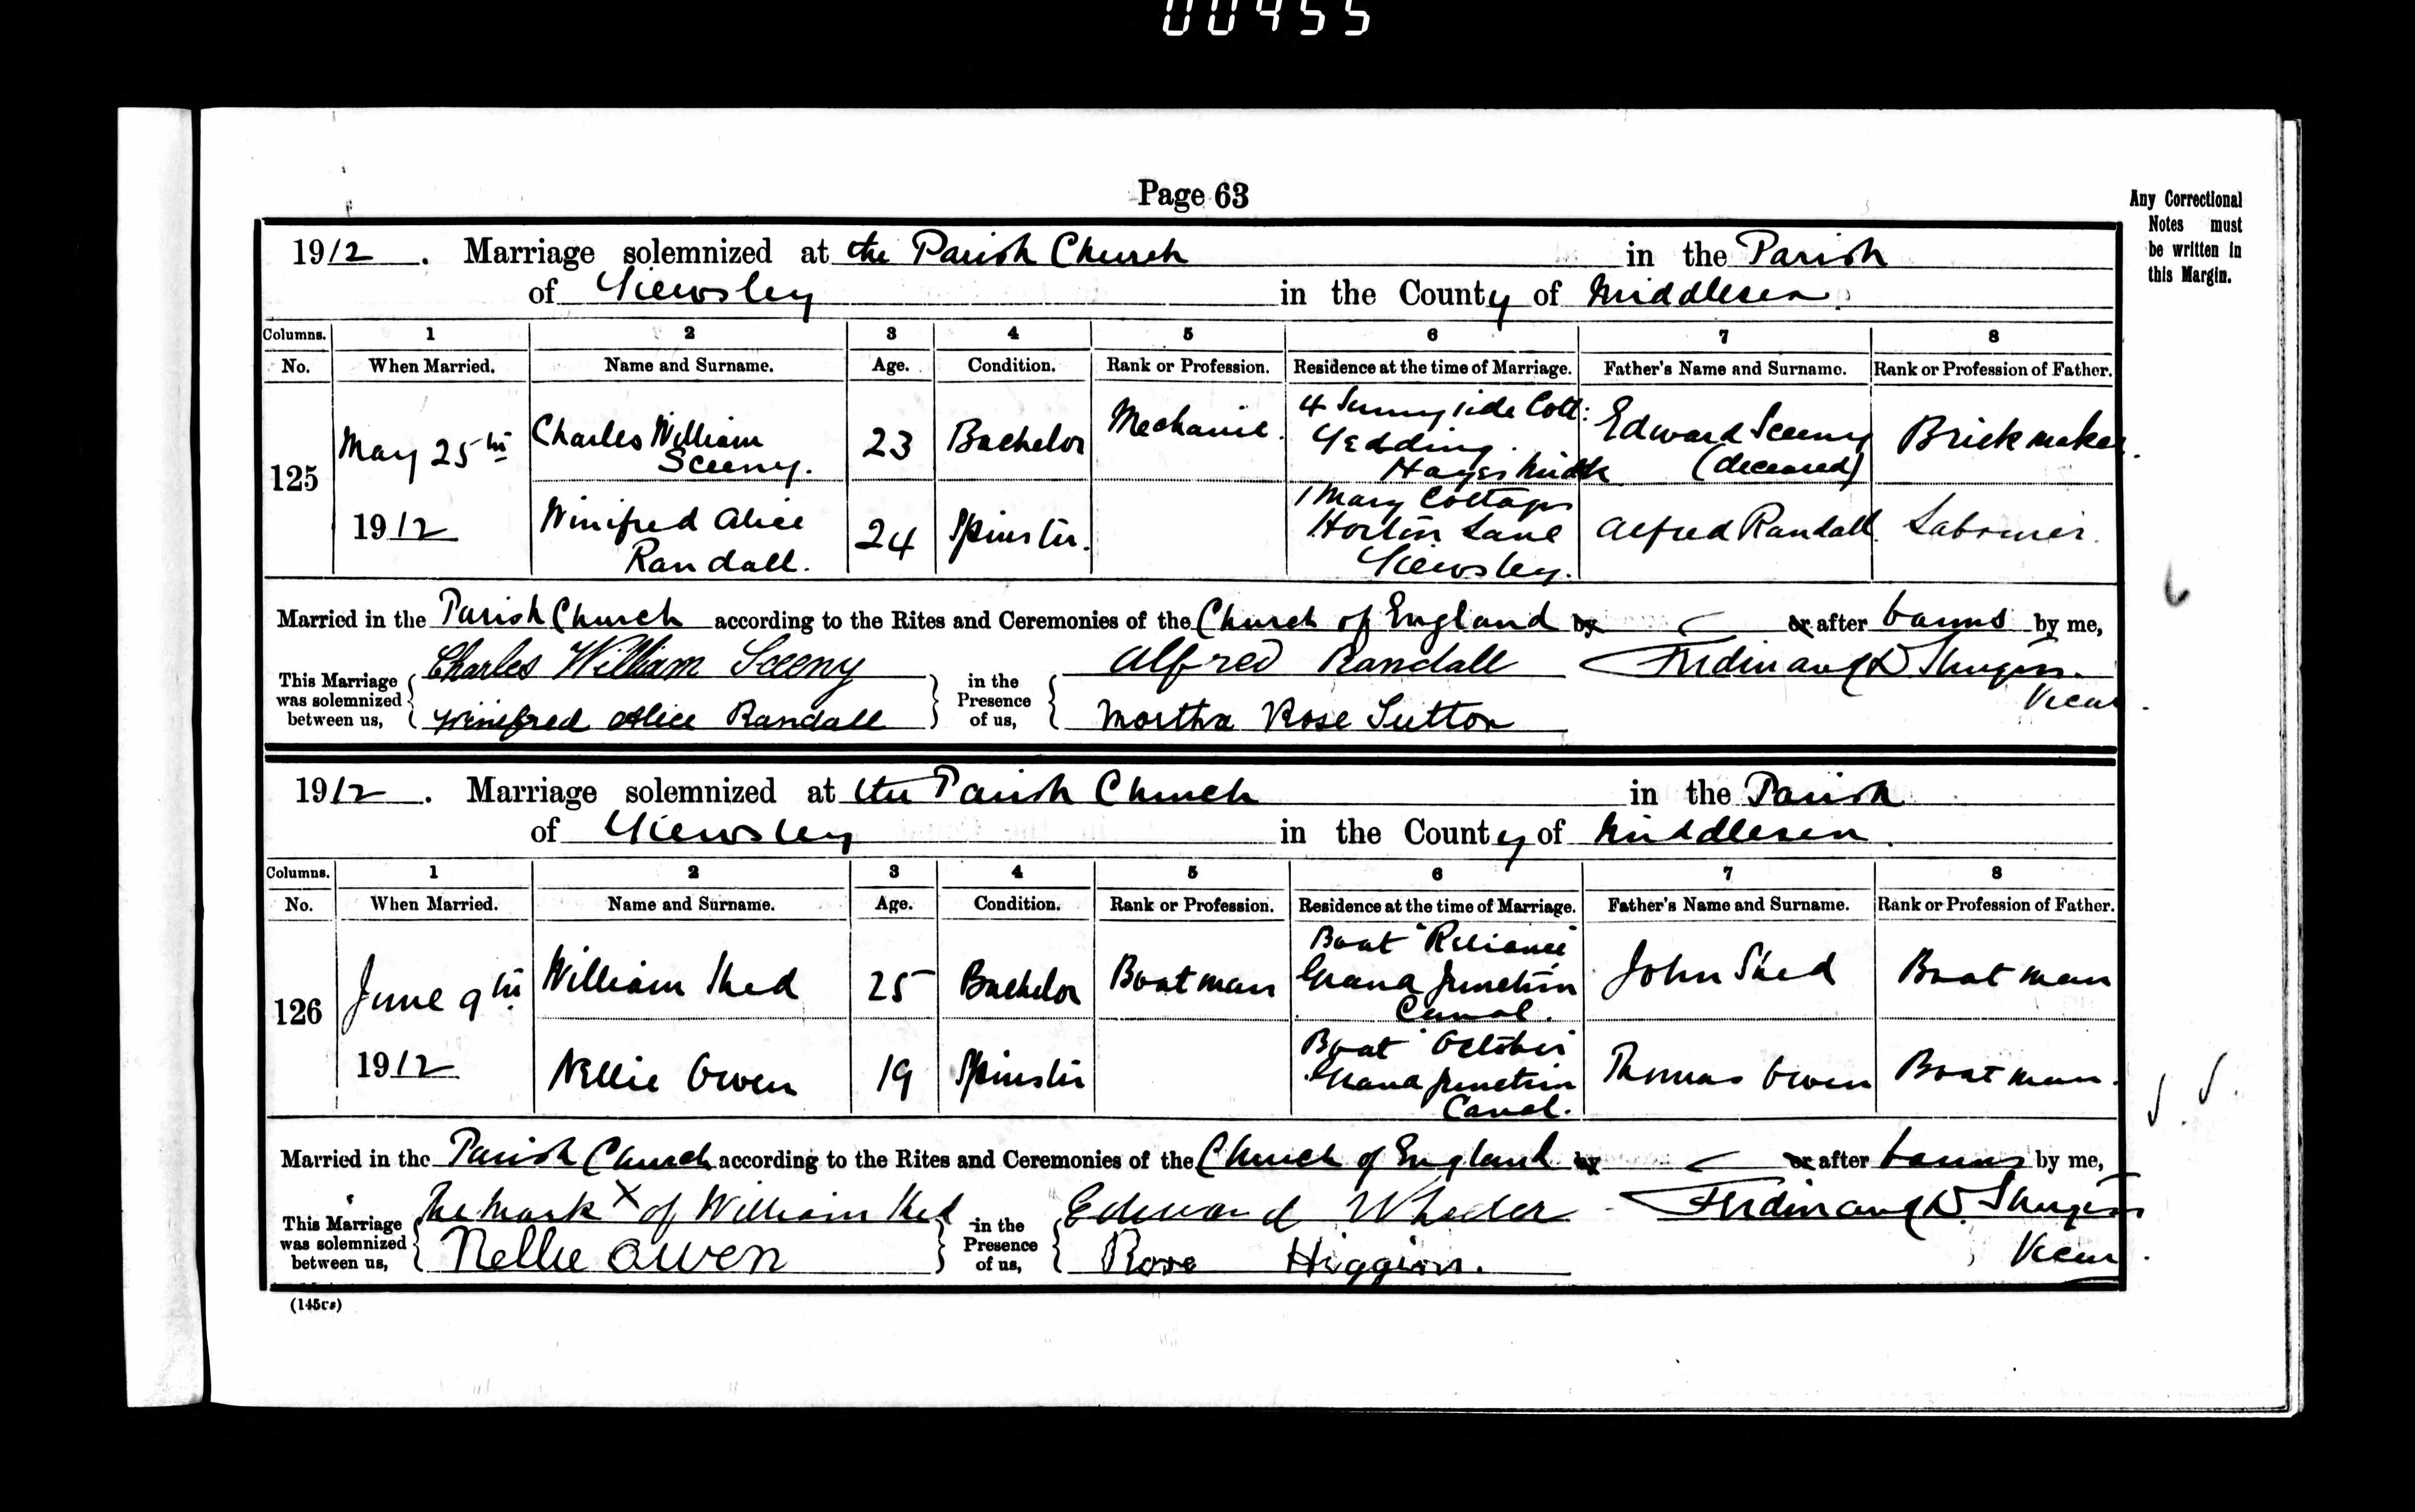 00455
Page 63
Any Correctional
Notes must
be written in
this Margin.
1912. Marriage solemnized at the Parish Church in the Parish
of Yiewsley in the County of Middlesex
Columns. 1 2 3 4 5 6 7 8
No. When Married. Name and Surname. Age. Condition. Rank or Profession. Residence at the time of Marriage. Father's Name and Surname. Rank or Profession of Father.
125 May 25th 1912 Charles William Sceeny. 23 Bachelor Mechanic. 4 Sunnyside Cott: Yedding. Hayes Middx Edward Sceeny (deceased) Brickmaker.
Winifred Alice Randall. 24 Spinster. 1 Mary Cottages Horton Lane Yiewsley. Alfred Randall. Labourer.
Married in the Parish Church according to the Rites and Ceremonies of the Church of England by or after banns by me,
This Marriage was solemnized between us, Charles William Sceeny in the Presence of us, Alfred Randall Ferdinand D
Winifred Alice Randall Martha Rose Sutton Vicar.
1912. Marriage solemnized at the Parish Church in the Parish
of Yiewsley in the County of Middlesex.
Columns. 1 2 3 4 5 6 7 8
No. When Married. Name and Surname. Age. Condition. Rank or Profession. Residence at the time of Marriage. Father's Name and Surname. Rank or Profession of Father.
126 June 9th 1912 William Shed 25 Bachelor Boatman Boat "Reliance" Grand Junction Canal. John Shed Boatman
Nellie Owen 19 Spinster Boat "October" Grand Junction Canal. Thomas Owen Boatman.
Married in the Parish Church according to the Rites and Ceremonies of the Church of England by or after banns by me,
This Marriage was solemnized between us, The Mark X of William Shed in the Presence of us, Edward Wheeler Ferdinand D.
Nellie Owen Rose Higgins. Vicar.